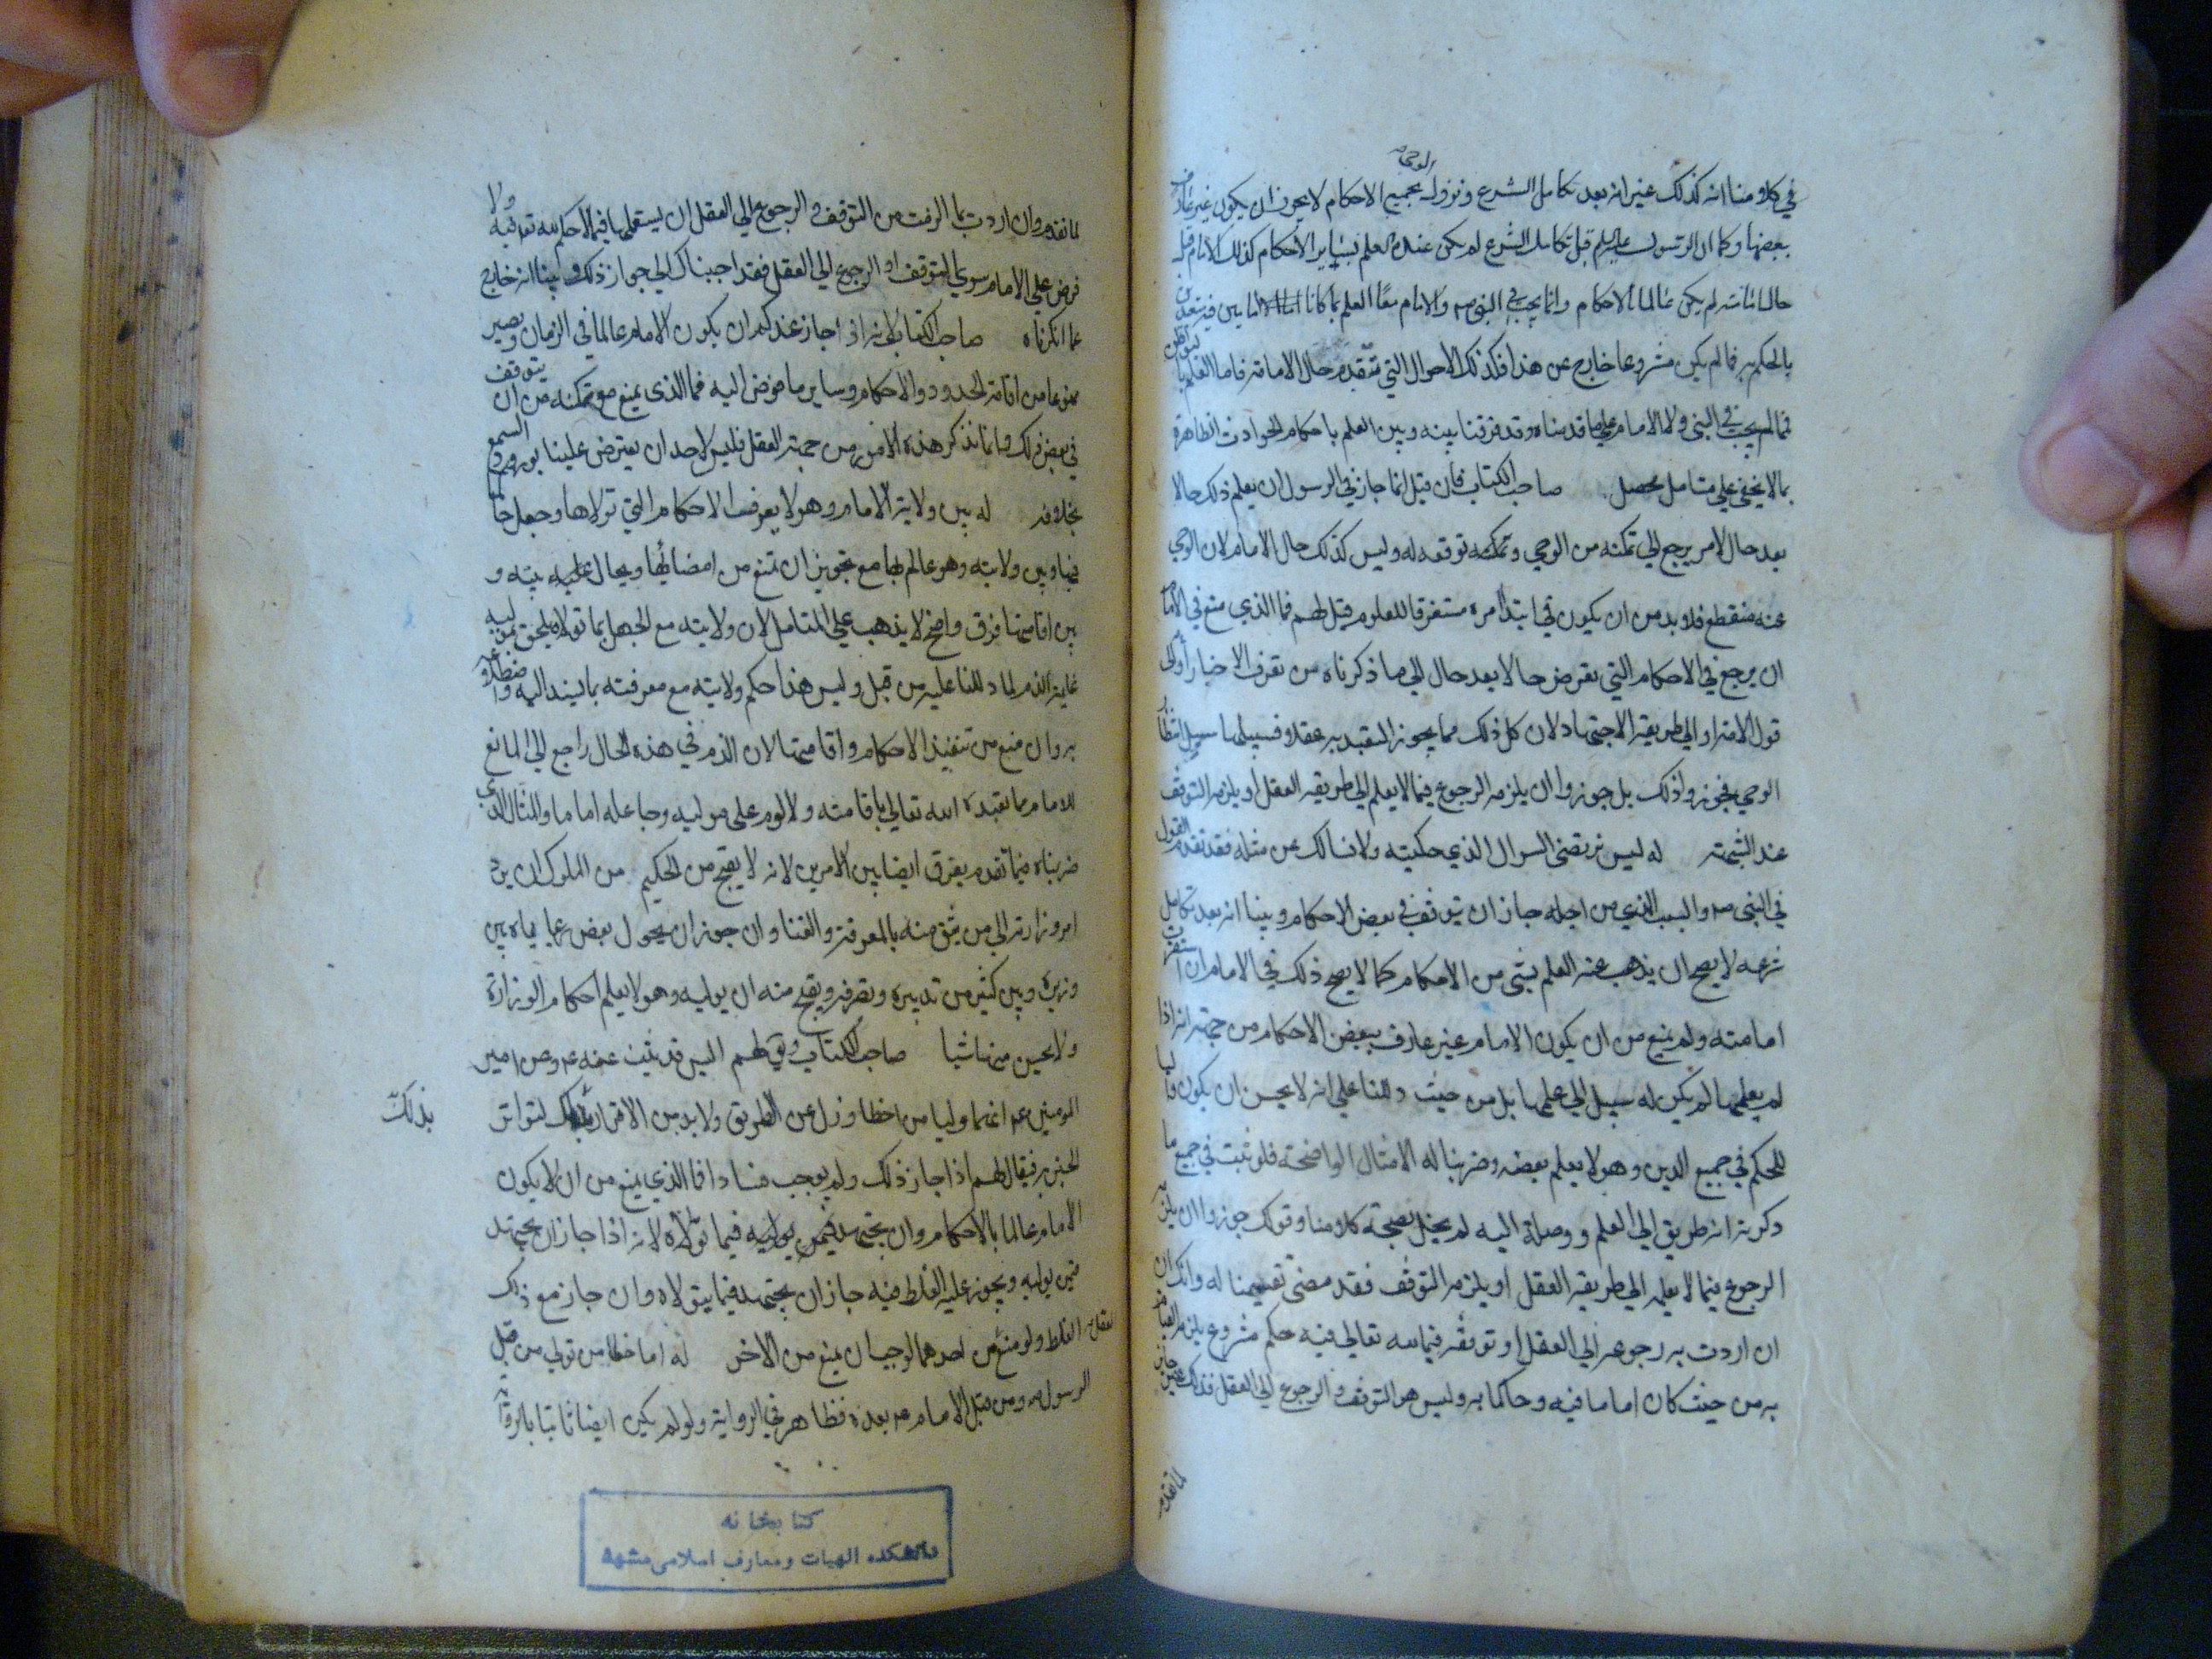 الوحي
في كلامنا انه كذلك غير انه بعد تكامل الشرع ونزول بجميع الاحكام لا يجوز ان يكون غير عارف
بعضها وكما ان الرسول عليه السلم قبل تكامل الشرع لم يكن عنده العلم بساير الاحكام كذلك الامام قبل
حال امامته لم يكن عالما بالاحكام وانما يجب في النبي ص والامام معا العلم بما كانا امامين فيه
بالحكم به فما لم يكن مشروعا خارج عن هذا فكذلك الاحوال التي تتقدم حال الامامة فاما العلم
فما لم يجب في النبي ولا الامام على ما قدمناه وقد فرقنا بينه وبين العلم باحكام الحوادث الظاهرة
بما لا يخفى على متامل محصل صاحب الكتاب فان قيل انما جاز في الرسول ان يعلم ذلك حالا
بعد حال لامر يرجع الى تمكنه من الوحي وتمكنه توقعه له وليس كذلك حال الامام لان الوحي
عنه منقطع فلا بد من ان يكون في ابتدا امره مستغرقا للعلوم قيل لهم فما الذي منع في الامام
ان يرجع في الاحكام التي تعرض حالا بعد حال الى ما ذكرناه من تعرف الاخبار أو الى
قول الامة او الى طريقة الاجتهاد لان كل ذلك مما يجوز التعبد به عقلا فسبيلها سبيل انتظار
الوحي فجوزوا ذلك بل جوزوا ان يلزمه الرجوع فيما لا يعلم الى طريقة العقل او يلزمه التوقف
عند الشبهة له ليس نرتضي السوال الذي حكيته ولا نسالك عن مثله فقد تقدم القول
في النبي ص والسبب الذي من اجله جاز ان يتوقف في بعض الاحكام وبينا انه بعد تكامل
شرعه لا يصح ان يذهب عنه العلم بشي من الاحكام كما لا يصح ذلك في الامام ان استقرت
امامته ولم نمنع من ان يكون الامام غير عارف ببعض الاحكام من جهة انه اذا
لم يعلمها لم يكن له سبيل الى علمها بل من حيث دللنا على انه لا يحسن ان يكون واليا
للحكم في جميع الدين وهو لا يعلم بعضه وضربنا له الامثال الواضحة فلو ثبت في جميع ما
ذكرته انه طريق الى العلم ووصلة اليه لم يخل بصحة كلامنا وقولك جوزوا ان يلزمه
الرجوع فيما لا يعلمه الى طريقة العقل او يلزمه التوقف فقد مضى تقسيمنا له وانك ان
ان اردت به رجوعه الى العقل او توقفه فيما لله تعالى فيه حكم مشروع يلزم القيام
به من حيث كان اماما فيه وحاكما به وليس هو التوقف والرجوع الى العقل فذلك غير جايز
لما تقدم
لما تقدم وان اردت بما الزمت من التوقف والرجوع الى العقل ان يستعملها فيما لا حكم لله تع فيه ولا
فرض على الامام سوى التوقف او الرجوع الى العقل فقد اجبناك الى جواز ذلك وبينا انه خارج
عما انكرناه صاحب الكتاب لانه اذا جاز عندكم ان يكون الامام عالما في الزمان ويصير
ممنوعا من اقامة الحدود والاحكام وساير ما فوض اليه فما الذي يمنع مع تمكنه من ان يتوقف
في بعض ذلك وانما نذكر هذه الامور من جهة العقل فليس لاحد ان يعترض علينا بورود السمع
بخلافه له بين ولاية الامام وهو لا يعرف الاحكام التي تولاها وجعل حاكما
فيها وبين ولايته وهو عالم بها مع تجويز ان تمنع من امضائها ويحال بينه و
بين اقامتها فرق واضح لا يذهب على المتامل لان ولايته مع الجهل بما تولاه يلحق بمن وليه
غاية الذم لما دللنا عليه من قبل وليس هذا حكم ولايته مع معرفته بما يسند اليه واضطلاعه
به وان منع من تنفيذ الاحكام واقامتها لان الذم في هذه الحال راجع الى المانع
للامام مما تعبده الله تعالى باقامته ولا لوم على موليه وجاعله اماما والمثال الذي
ضربناه فيما تقدم يفرق ايضا بين الامرين لانه لا يقبح من الحكيم من الملوك ان يرد
امر وزارته الى من يثق منه بالمعرفة والغنا وان جوز ان يحول بعض رعاياه بين
وزيره وبين كثير من تدبيره وتصرفه ويقبح منه ان يوليه وهو لا يعلم احكام الوزارة
ولا يحسن منها شيا صاحب الكتاب ويق لهم اليس قد ثبت عنه ع وعن امير
المومنين ع انهما وليا من اخطا وزل عن الطريق ولا بد من الاقرار بذلك لتواتر
بذلك
الخبر به فيقال لهم اذا جاز ذلك ولم يوجب فسادا فما الذي يمنع من ان لا يكون
الامام عالما بالاحكام وان يجتهد فيمن يوليه فيما تولاه لانه اذا جاز ان يجتهد
فيمن يوليه ويجوز عليه الغلط فيه جاز ان يجتهد فيما يتولاه وان جاز مع ذلك
الغلط ولو منع من احدهما لوجب ان يمنع من الاخر له اما خطا من تولى من قبل
الرسول ص ومن قبل الامام ع بعده فظاهر في الرواية ولو لم يكن ايضا ثابتا بالرواية
كتابخانه
دانشكده الهيات ومعارف اسلامى مشهد